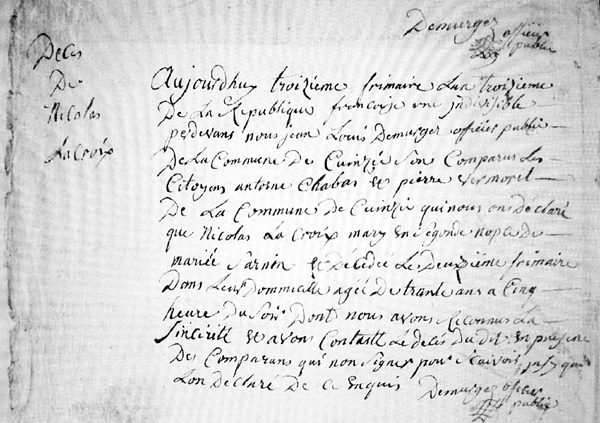 Demurger officier
public
Deces
De
Nicolas
La croix
Aujourdhuy troizieme frimaire Lan troizieme
De La Republique francoise une indivisible
perdevans nous jean Louis Demurger officier public
De La Commune De Cuinzié Son Comparus Les
Citoyens antoine Chabas et pierre Vermorel
De La Commune De Cuinzié qui nous on Déclaré
que Nicolas La Croix mary en segonde nopce De
mariée Sarnin et Décédée Le Deuzieme frimaire
Dans Leur Dommicille agée De trante ans a Cinq
heure Du Soir Dont nous avons Reconnus La
Sincirité et avons Contasté Le deces Du dit En presene
Des Comparans qui non Signer pour Scavoir
Lon Declaré De Ce Enquis
Demurger officier
public